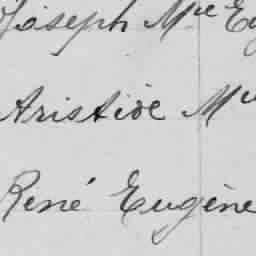 Joseph Mie Eu
Aristide M
René Eugène